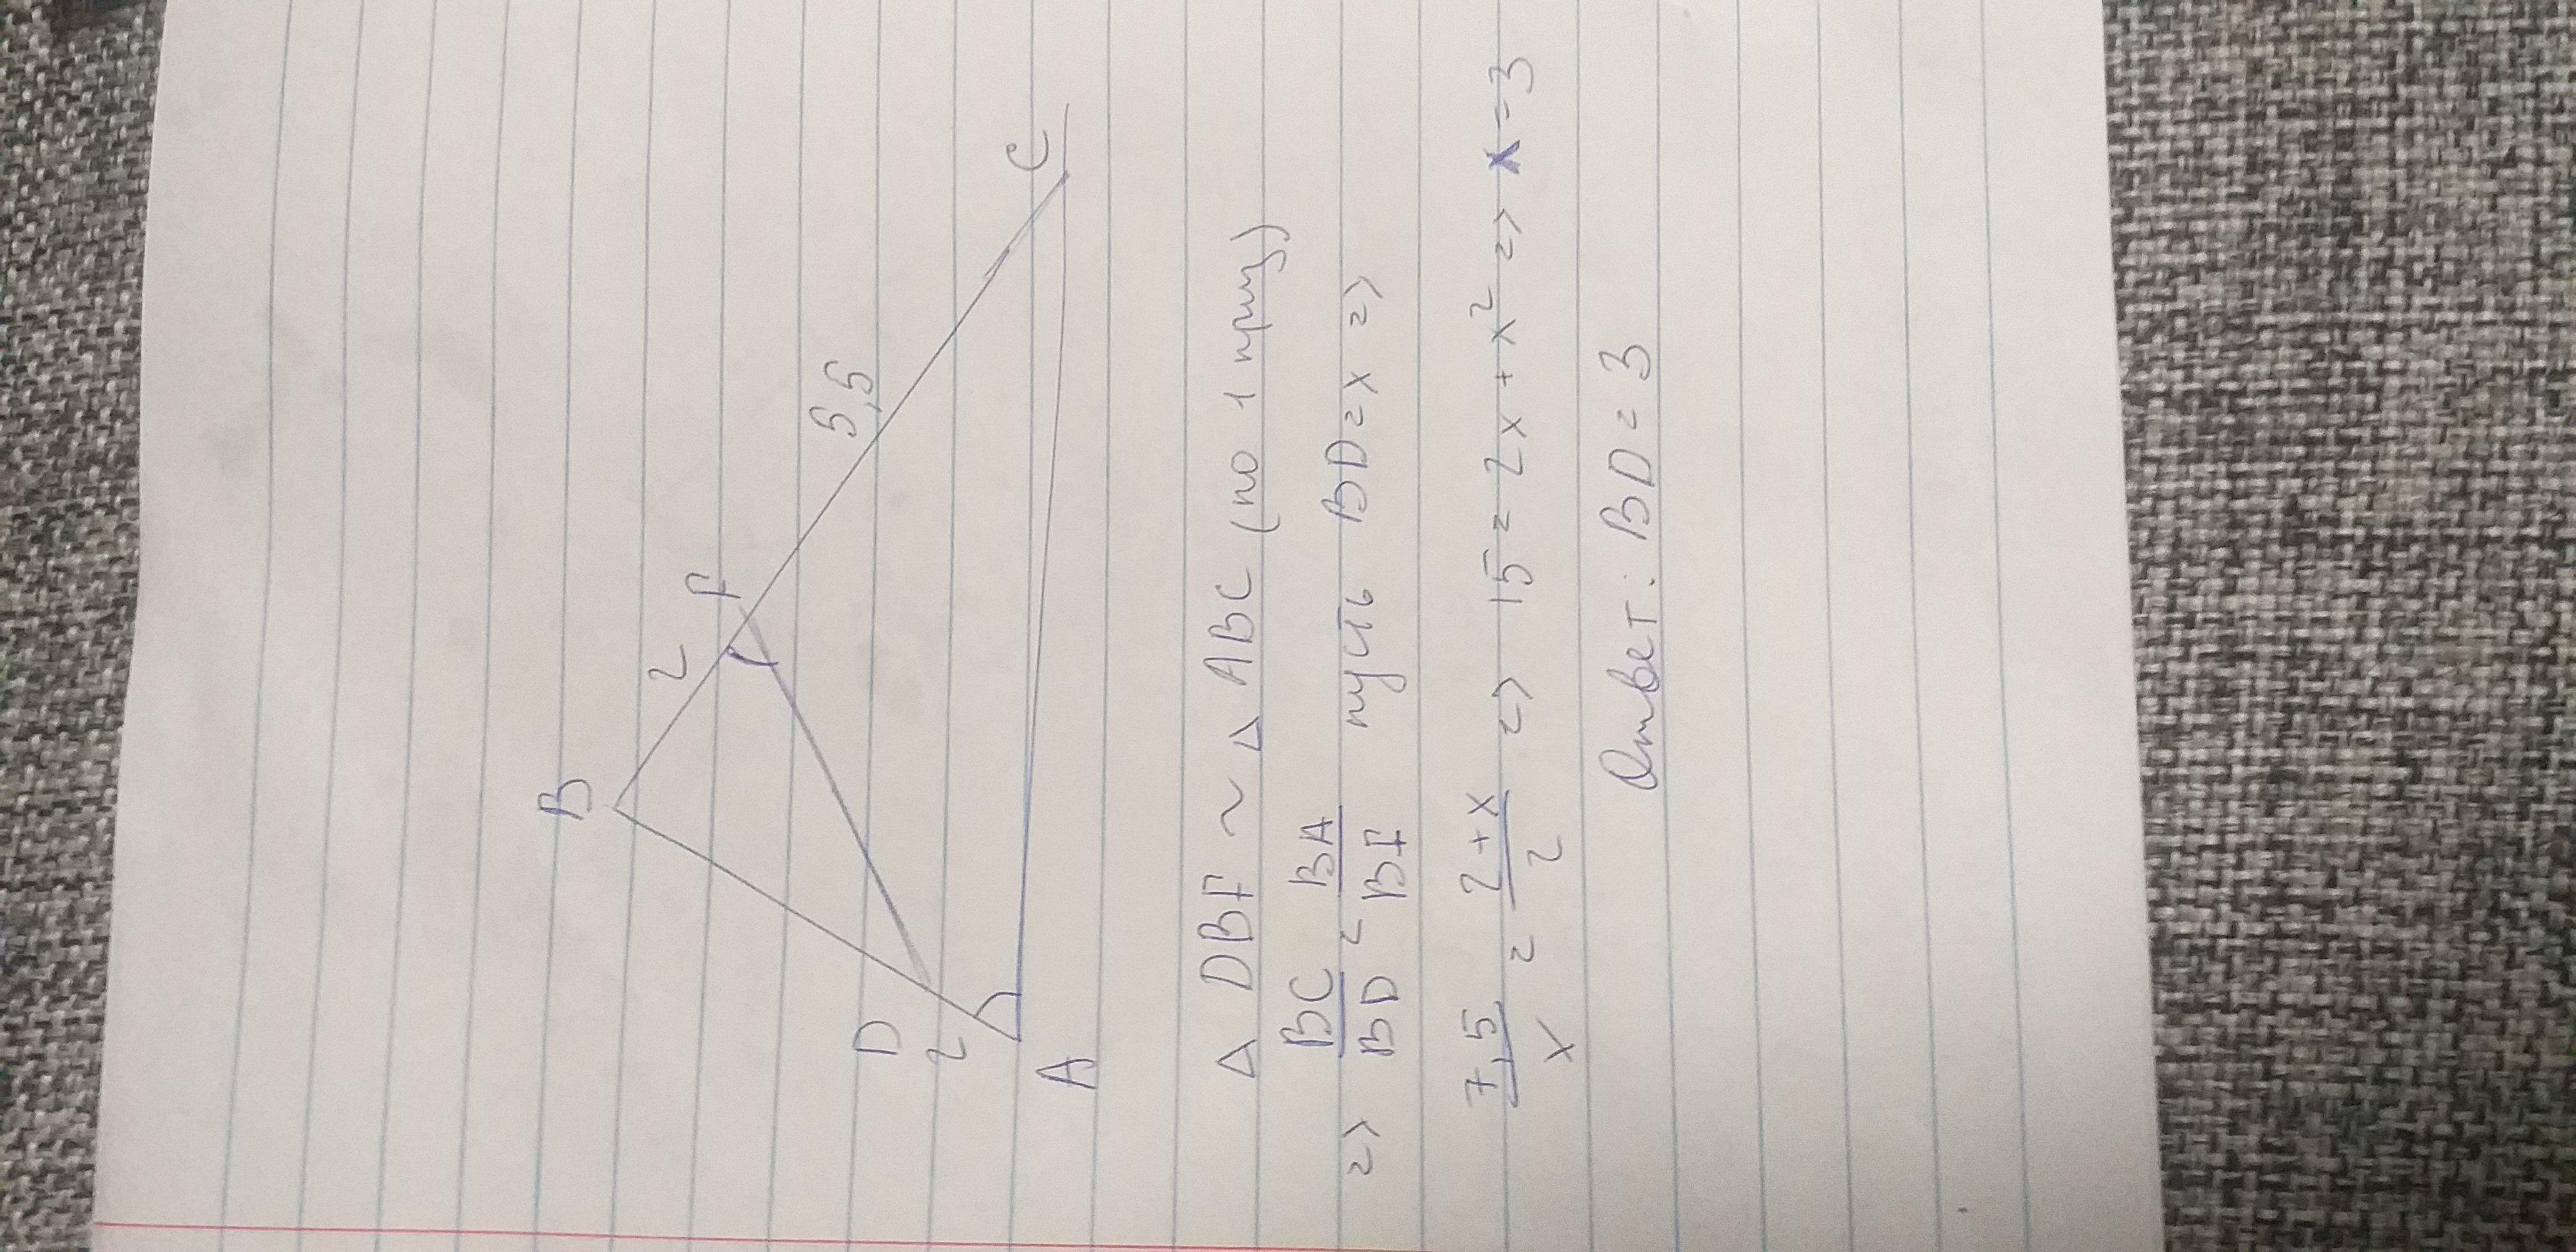 B
2
F
5,5
D
2
A
C
Δ DBF ~ Δ ABC (по 1 призн)
=> BC/BD = BA/BF пусть BD = x =>
7,5/x = 2+x/2 => 15 = 2x + x² => x = 3
Ответ: BD = 3